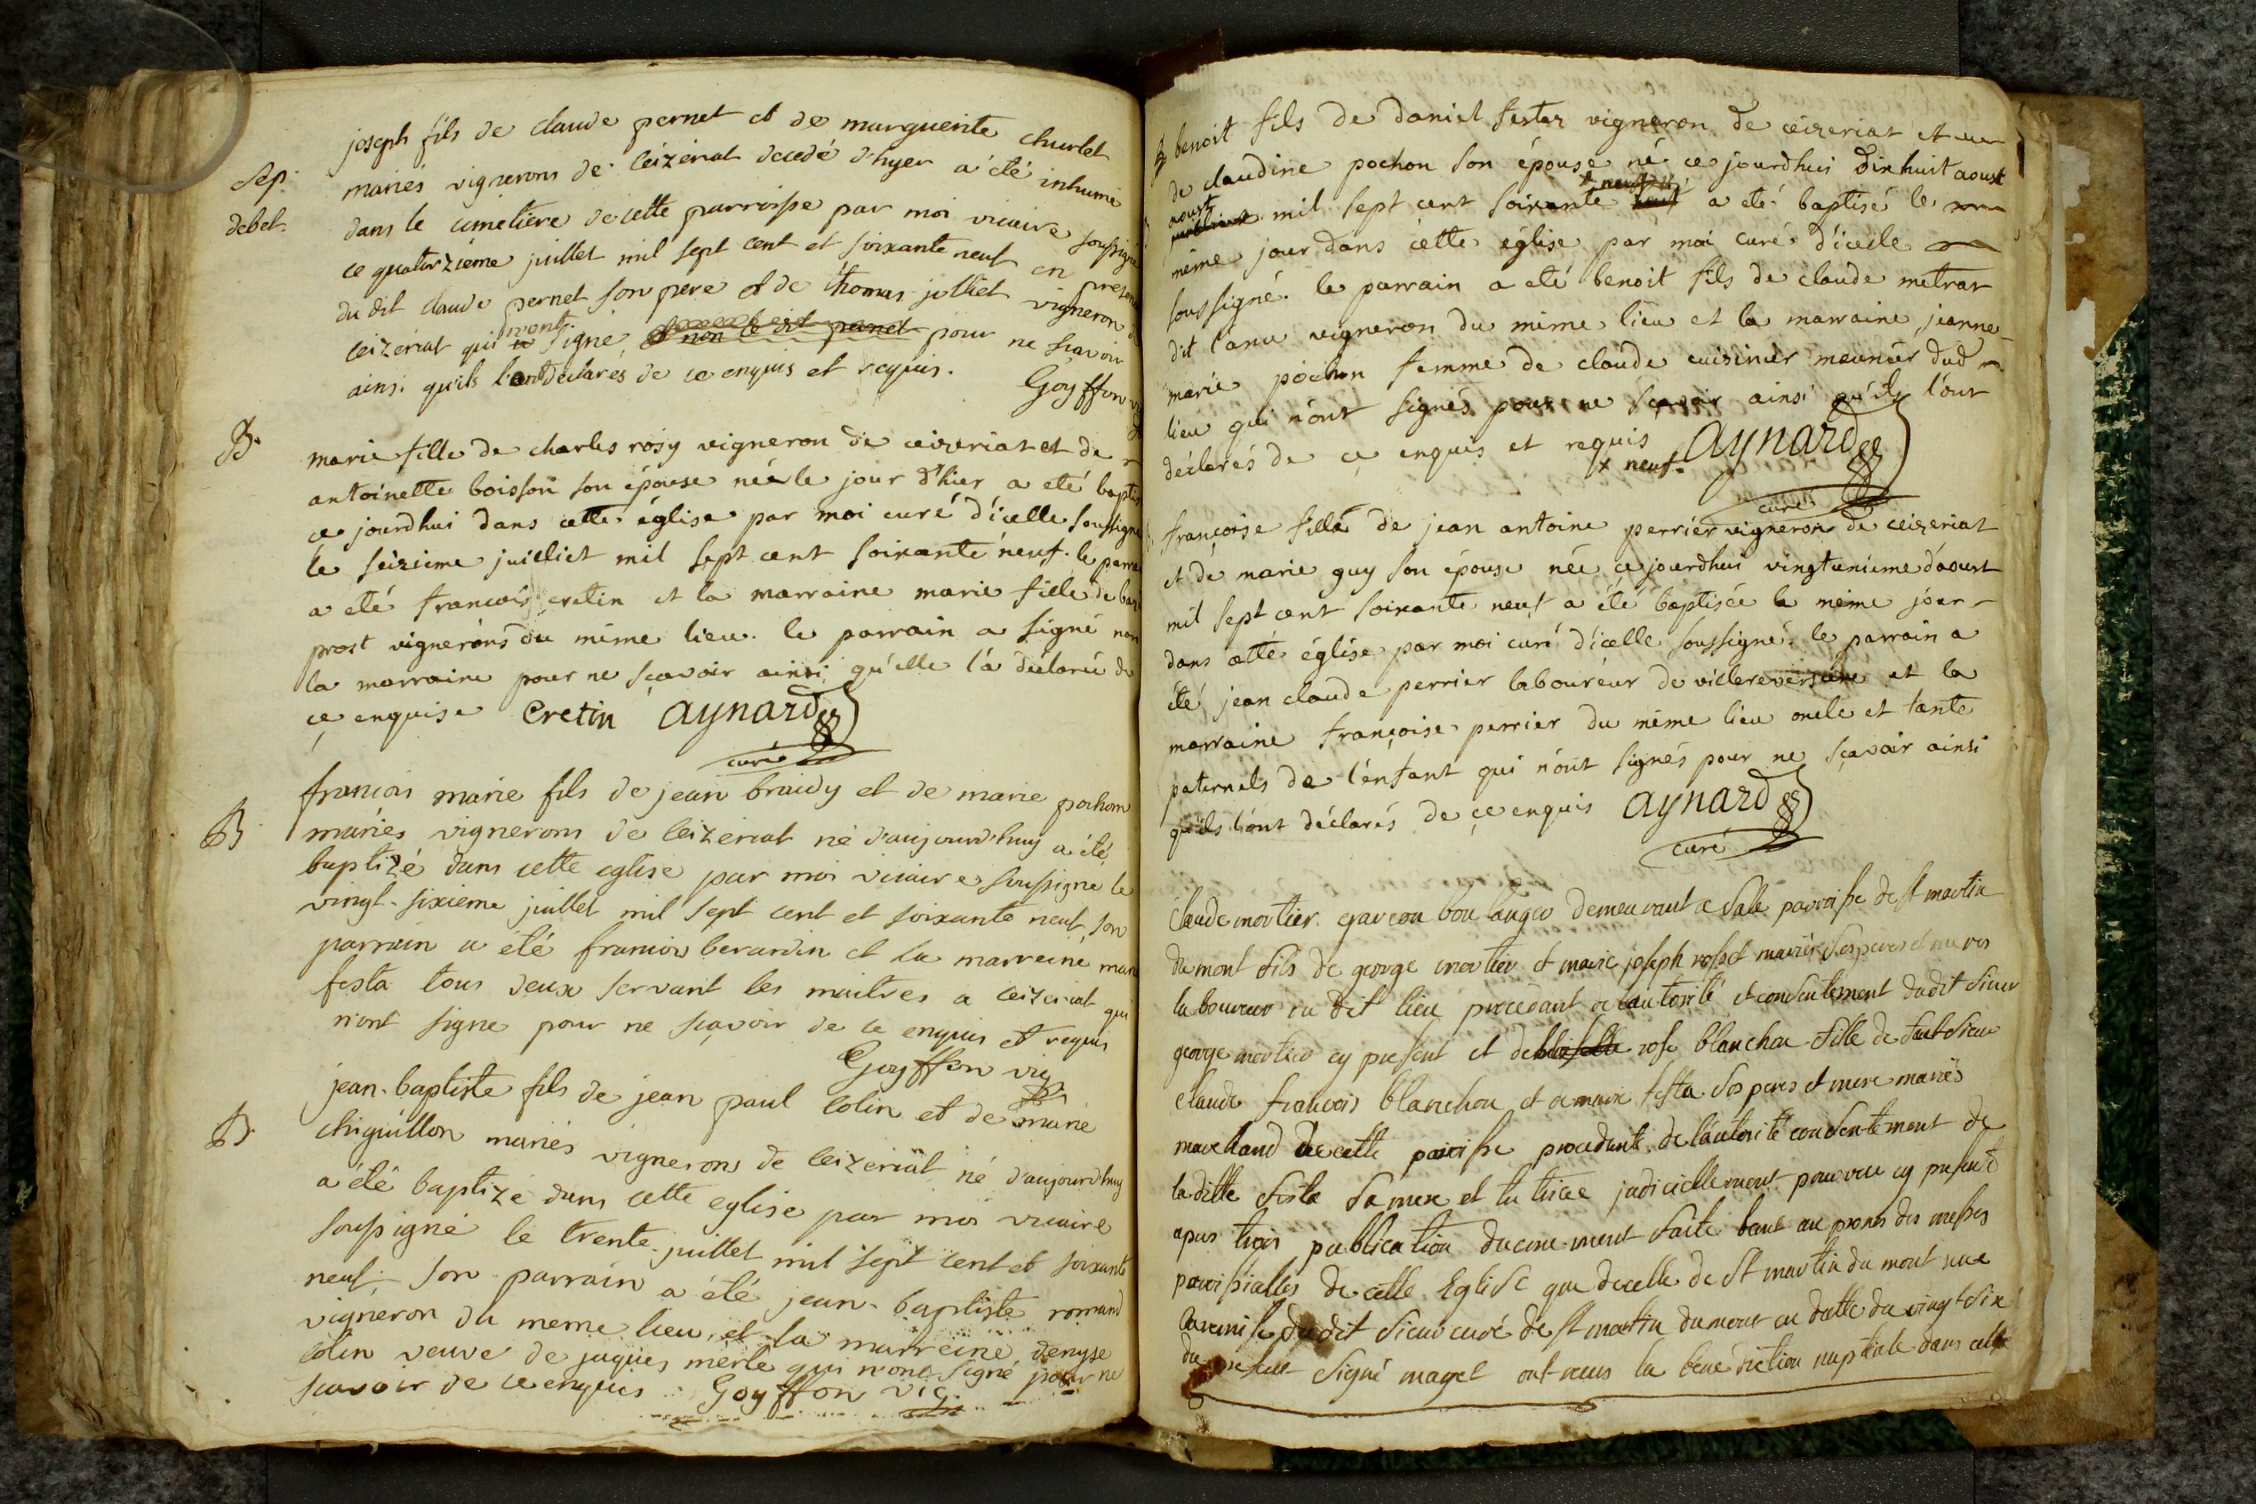 joseph fils de claude pernet et de marguerite churlet
Sep. mariés vignerons de ceizeriat decedé d'hyer a été inhumé
debet. dans le cimetiere de cette parroisse par moi vicaire soussigné
ce quatorzieme juillet mil sept cent et soixante neuf en presence
du dit claude pernet son pere et de thomas jolliet vigneron de
ceizeriat qui n'ont signé et non le dit pernet pour ne sçavoir
ainsi qu'ils l'ont declarés de ce enquis et requis.
Goyffon vic
B. marie fille de charles rosy vigneron de ceizeriat et de
antoinette boisson son épouse née le jour d'hier a eté baptisée
ce jourdhui dans cette église par moi curé d'icelle soussigné
le seizieme juilliet mil sept cent soixante neuf. le parrain
a eté francois cretin et la marraine marie fille de
prost vignerons du même lieu. le parrain a signé non
la marraine pour ne sçavoir ainsi qu'elle l'a déclaré de
ce enquise Cretin Aynard
curé
francois marie fils de jean braidy et de marie pochon
B mariés vignerons de ceizeriat né d'aujourd'huy a été
baptizé dans cette eglise par moi vicaire soussigné le
vingt-sixieme juillet mil sept cent et soixante neuf, son
parrain a été francois berardin et la marreine marie
festa tous deux servant les maitres a ceizeriat qui
n'ont signe pour ne sçavoir de ce enquis et requis
Goyffon vic
jean-baptiste fils de jean paul colin et de marie
B. chiquillon mariés vignerons de ceizeriat né d'aujourd'huy
a été baptizé dans cette eglise par moi vicaire
soussigné le trente juillet mil sept cent et soixante
neuf. son parrain a été jean-baptiste romand
vigneron du meme lieu, et la marreine denyse
colin veuve de jaques merle qui n'ont signé pour ne
scavoir de ce enquis Goyffon vic.
B benoit fils de daniel festaz vigneron de ceizeriat et
de claudine pochon son épouse né ce jourdhui dixhuit aoust
aoust mil sept cent soixante x neuf a eté baptisé le
même jour dans cette église par moi curé d'icelle
soussigné. le parrain a eté benoit fils de claude metrat
dit canu vigneron du même lieu et la marraine jeanne
marie pochon femme de claude cuizinier meunier dud
lieu qui n'ont signés pour ne sçavoir ainsi qu'ils l'ont
déclarés de ce enquis et requis Aynard
x neuf. curé
françoise fille de jean antoine perrier vigneron de ceizeriat
et de marie guy son épouse née ce jourdhui vingtunieme d'aoust
mil sept cent soixante neuf a été baptisée le même jour
dans cette église par moi curé d'icelle soussigné. le parrain a
été jean claude perrier laboureur de villereversure et la
marraine françoise perrier du même lieu oncle et tante
paternels de l'enfant qui n'ont signés pour ne sçavoir ainsi
qu'ils l'ont déclarés de ce enquis Aynard
curé
Claude mortier garcon boulanger demeurant a Salé parroisse de st martin
du mont fils de george mortier et marie joseph rosset mariés ses peres et meres
laboureur du dit lieu procedant de l'autorité et consentement du dit sieur
george mortier cy present et de rose blanchon fille de feu sieur
claude francois blanchon et de marie festa ses peres et mere mariés
marchand de cette paroisse procedante de l'autorité consentement de
la ditte festa sa mere et tutrice judiciellement pourvue cy present
apres trois publication ducme-ment faite tant au prones des messes
paroissialles de cette Eglise que de celle de st martin du mont vue
la remise du dit sieur curé de st martin du mont en datte du vingt six
du signé maget ont recus la benediction nuptiale dans cette